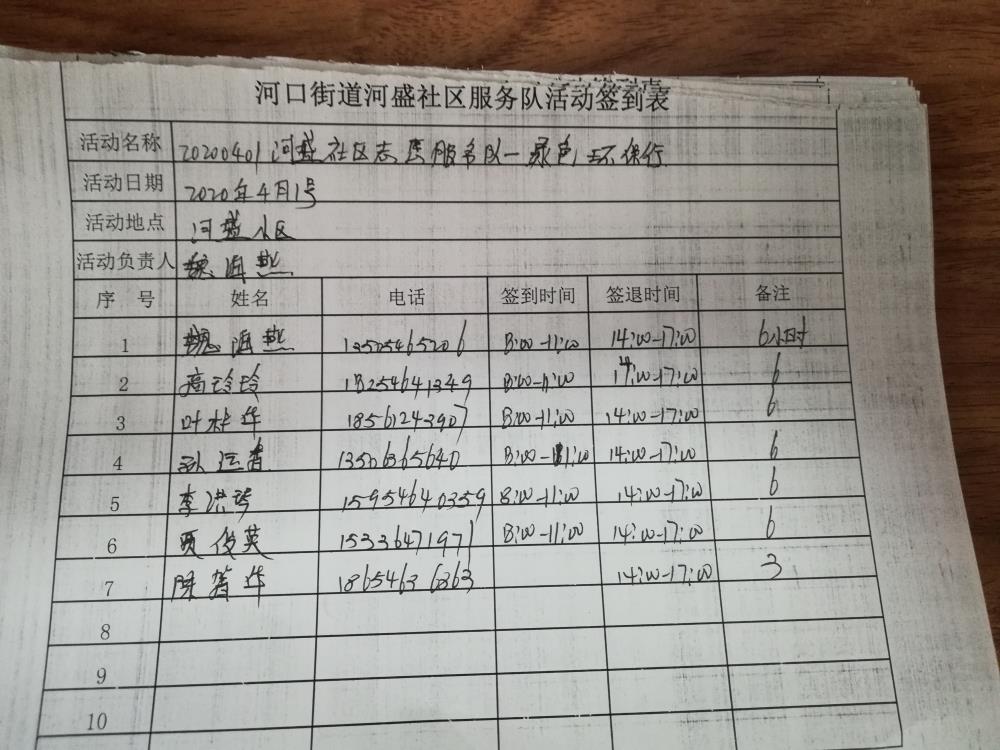 河口街道河盛社区服务队活动签到表
活动名称 20200401河盛社区志愿服务队—绿色环保行
活动日期 2020年4月1号
活动地点 河盛小区
活动负责人 魏海燕
序号 姓名 电话 签到时间 签退时间 备注
1 魏海燕 13505465206 8:00-11:00 14:00-17:00 6小时
2 高玲玲 18254641349 8:00-11:00 14:00-17:00 6
3 叶林华 18561243907 8:00-11:00 14:00-17:00 6
4 孙运香 13506365640 8:00-11:00 14:00-17:00 6
5 李洪琴 15954640359 8:00-11:00 14:00-17:00 6
6 贾俊英 15336471971 8:00-11:00 14:00-17:00 6
7 陈菁华 18654636363 14:00-17:00 3
8
9
10